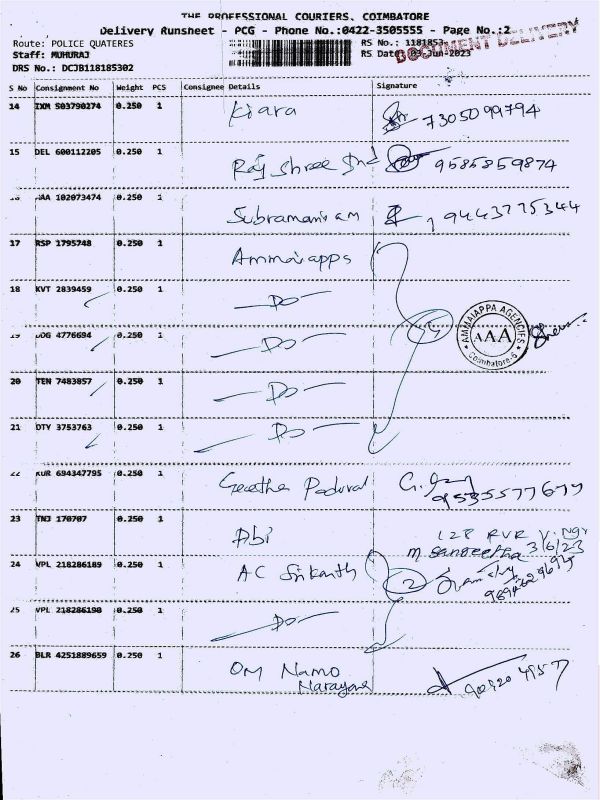 THE PROFESSIONAL COURIERS, COIMBATORE
Delivery Runsheet - PCG - Phone No.:0422-3505555 - Page No.:2
Route: POLICE QUATERES
RS No.: 1181853
Staff: MUHURAJ
RS Date: 03-Jun-2023
DOCUMENT DELIVERY
DRS No.: DCJB118185302
S No Consignment No Weight PCS Consignee Details Signature
14 IXM 503790274 0.250 1 Kiara 7305099794
15 DEL 600112205 0.250 1 Raj shree Ind 9585859874
102073474 0.250 1 Subramaniam 9443775344
17 RSP 1795748 0.250 1 Ammaiapps
18 KVT 2839459 0.250 1 -Do-
19 4776694 0.250 1 -Do- 5
AMMAIAPPA AGENCIES
AAA
Coimbatore-6
20 TEN 7483857 0.250 1 -Do-
21 DTY 3753763 0.250 1 -Do-
22 KUR 694347795 0.250 1 Geetha 9535577677
23 TNJ 170707 0.250 1 128 RVR Ngr
M Sangeetha 3/6/23
24 VPL 218286189 0.250 1 AC Srikanth 2
25 VPL 218286190 0.250 1 -Do-
26 BLR 4251889659 0.250 1 OM Namo
Narayana